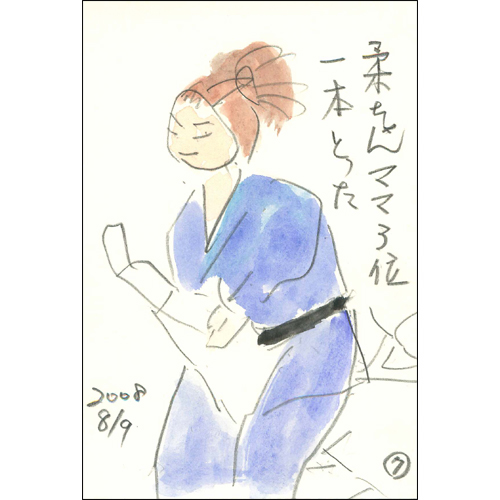 柔ちゃんママ3位
一本とった
2008
8/9
⑦